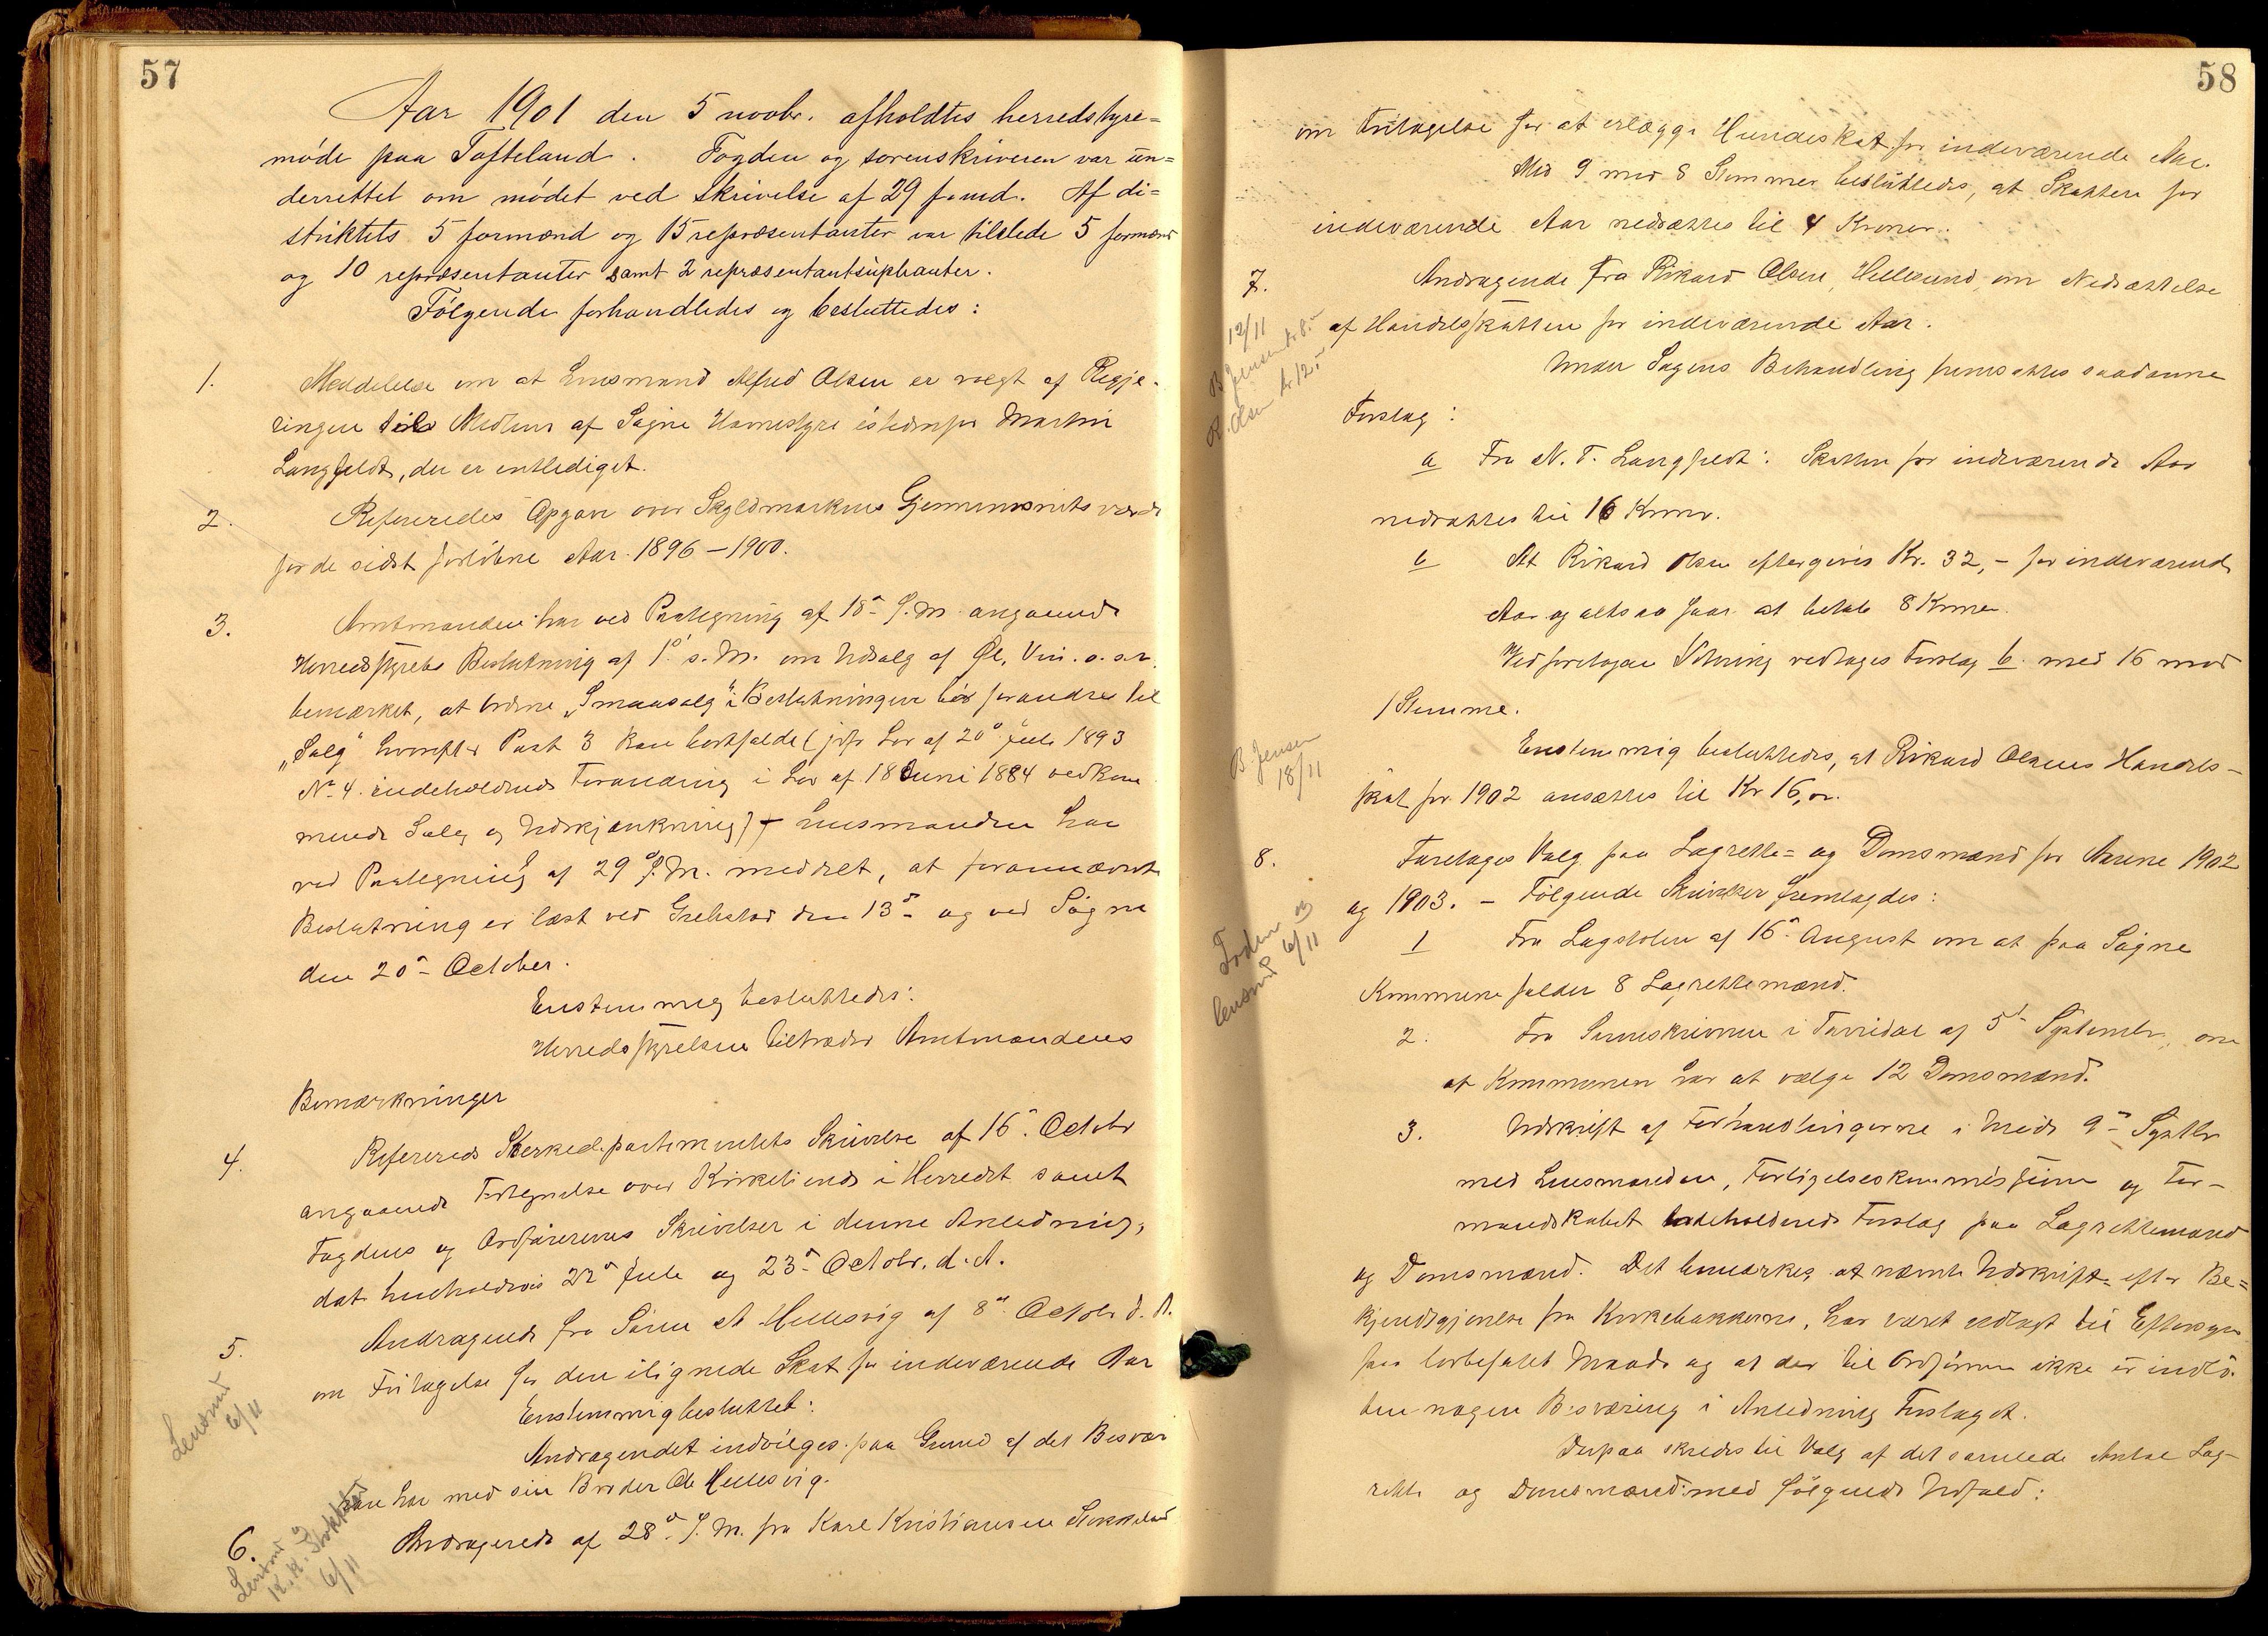 57
Aar 1901 den 5 novbr. afholdtes herredstyre=
møde paa Tofteland. Fogden og sorenskriveren var un=
derrettet om mødet ved skrivelse af 29 f. md. Af di=
striktets 5 formænd og 15 repræsentanter var tilstede 5 formænd
og 10 repræsentanter samt 2 repræsentantsuplianter.
Følgende forhandledes og besluttedes:
1. Meddelelse om at Lensmand Alfred Olsen er valgt af Regje-
ringen til Medlem af Søgne Havnestyre istedenfor Martin
Langfeldt, der er entlediget.
2. Refereredes Opgave over Skyldmarkens Gjennemsnitsværdi
for de sidst forløbne Aar 1896-1900.
3. Amtmanden har ved Paategning af 18de f. M. angaaende
Herredsstyrets Beslutning af 1ste s. M. om Udsalg af Øl, Vin o.s.v.
bemærket, at Ordene „Smaasalg" i Beslutningen bør forandres til
„Salg" hvorefter Post 3 kan bortfalde (jvfr Lov af 20de Juli 1893
No. 4. indeholdende Forandring i Lov af 18 Juni 1884 vedkom
mende Salg og Udskjænkning) - Lensmanden har
ved Paategning af 29de f. M. meddelt, at forannævnte
Beslutning er læst ved Grebstad den 13de og ved Søgne
den 20de October.
Enstemmig besluttedes:
Herredsstyrelsen tiltræder Amtmandens
Bemærkninger
4. Refereredes Kirkedepartementets Skrivelse af 16de Octobr
angaaende Fortegnelse over Kirketiende i Herredet samt
Fogdens og Ordførerens Skrivelser i denne Anledning,
dat. henholdsvis 22de Juli og 23de Octobr. d. A.
5. Andragende fra Søren A. Hellesvig af 8de Octobr d. A.
om Fritagelse for den ilignede Skat for indeværende Aar
Enstemmig besluttet:
Andragendet indvilges paa Grund af det Besvær
han har med sin Broder Ole Hellesvig.
Lensmd
6/11
6. Andragende af 28de f. M. fra Karl Kristiansen Stokkeland
Lensmd og
K. K. Stokkeland
6/11
58
om Fritagelse for at erlægge Hundeskat for indeværende Aar.
Med 9 mod 8 Stemmer besluttedes, at Skatten for
indeværende Aar nedsættes til 4 Kroner.
7. Andragende fra Rikard Olsen, Hellesund, om Nedsættelse
af Handelsskatten for indeværende Aar.
Under Sagens Behandling fremsattes saadanne
Forslag:
12/11
B Jensen kr 8.-
R. Olsen kr 12.-
a Fra N. T. Langfeldt: Skatten for indeværende Aar
nedsættes til 16 Kroner.
b At Rikard Olsen eftergives Kr. 32,- for indeværende
Aar og altsaa faar at betale 8 Kroner.
Ved foretagen Votering vedtages Forslag b. med 16 mod
1 Stemme.
Enstemmig besluttedes, at Rikard Olsens Handels-
skat for 1902 ansættes til Kr 16,oo.
B. Jensen
18/11
8. Foretages Valg paa Lagrette= og Domsmænd for Aarene 1902
og 1903. - Følgende Skrivelser fremlagdes:
1 Fra Lagstolen af 16de August om at paa Søgne
Kommune falder 8 Lagrettemænd.
Foden og
lensmd 6/11
2. Fra Sorenskriveren i Torridal af 5te Septembr, om
at Kommunen har at vælge 12 Domsmænd.
3. Udskrift af Forhandlingerne i Møde 9de Septbr
med Lensmanden, Forligelseskommissionen og For-
mandskabet indeholdende Forslag paa Lagrettemænd
og Domsmænd. Det bemærkes at nævnte Udskrift, efter Be=
kjendtgjørelse fra Kirkebakkerne, har været udlagt til Eftersyn
paa lovbefalet Maade og at der til Ordføreren ikke er indlø-
ben nogen Besværing i Anledning Forslaget.
Derpaa skredes til Valg af det samlede Antal Lag-
rette og Domsmænd med følgende Udfald: